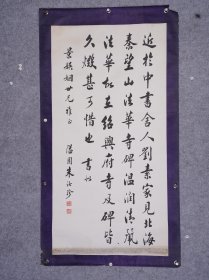 近於中書舍人劉素家見北海
秦望山法華寺碑温潤清麗
法華在紹興府寺及碑皆
久燬甚可惜也 書似
世兄雅正
隘園朱汝珍